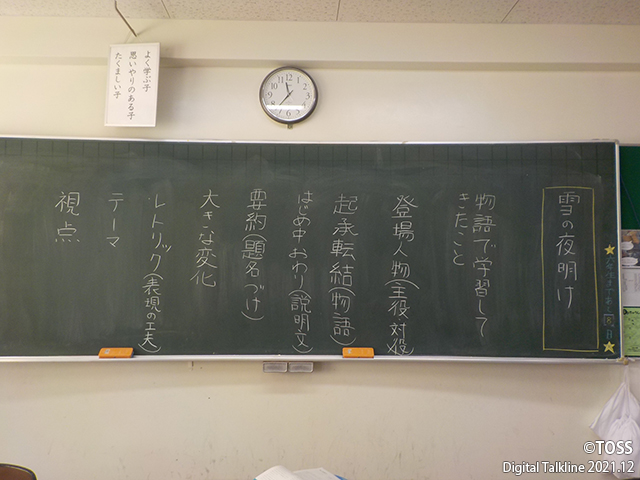 よく学ぶ子
思いやりのある子
たくましい子
雪の夜明け
物語で学習して
きたこと
登場人物(主役 対役)
起承転結(物語)
はじめ中おわり(説明文)
要約(題名づけ)
大きな変化
レトリック(表現の工夫)
テーマ
視点
12
1
2
3
4
5
6
7
8
9
10
11
©TOSS
Digital Talkline 2021.12